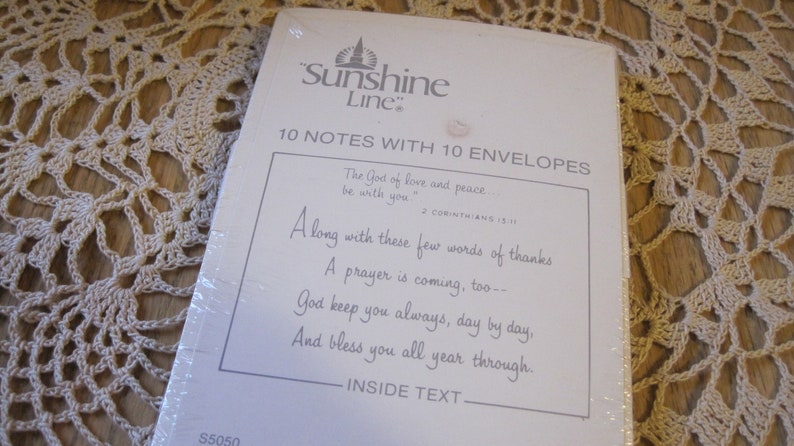 "Sunshine
Line"®
10 NOTES WITH 10 ENVELOPES
The God of love and peace...
be with you."
2 CORINTHIANS 13:11
Along with these few words of thanks
A prayer is coming, too--
God keep you always, day by day,
And bless you all year through.
INSIDE TEXT
S5050